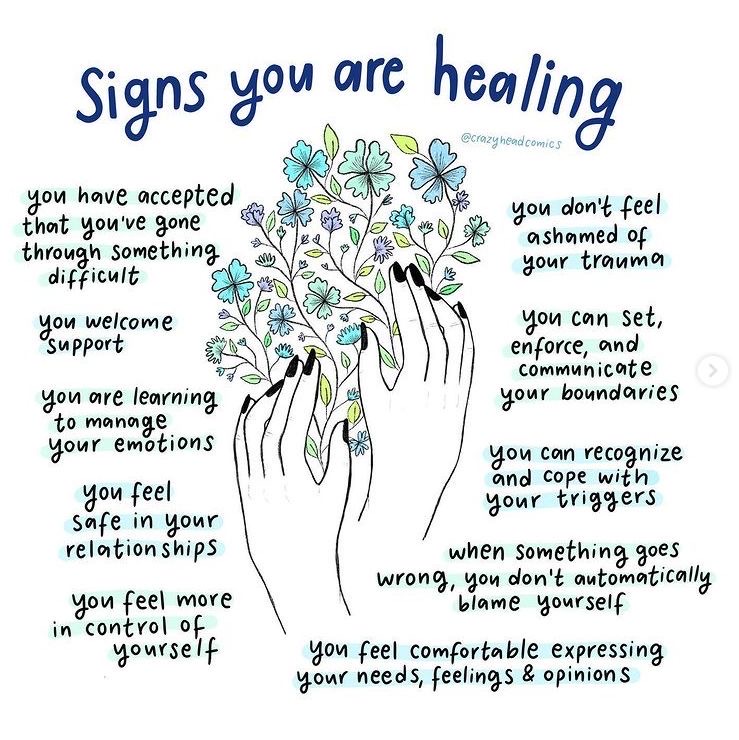 Signs you are healing
@crazyheadcomics
you have accepted
that you've gone
through something
difficult
you welcome
support
you are learning
to manage
your emotions
you feel
safe in your
relationships
you feel more
in control of
yourself
you don't feel
ashamed of
your trauma
you can set,
enforce, and
communicate
your boundaries
you can recognize
and cope with
your triggers
when something goes
wrong, you don't automatically
blame yourself
you feel comfortable expressing
your needs, feelings & opinions